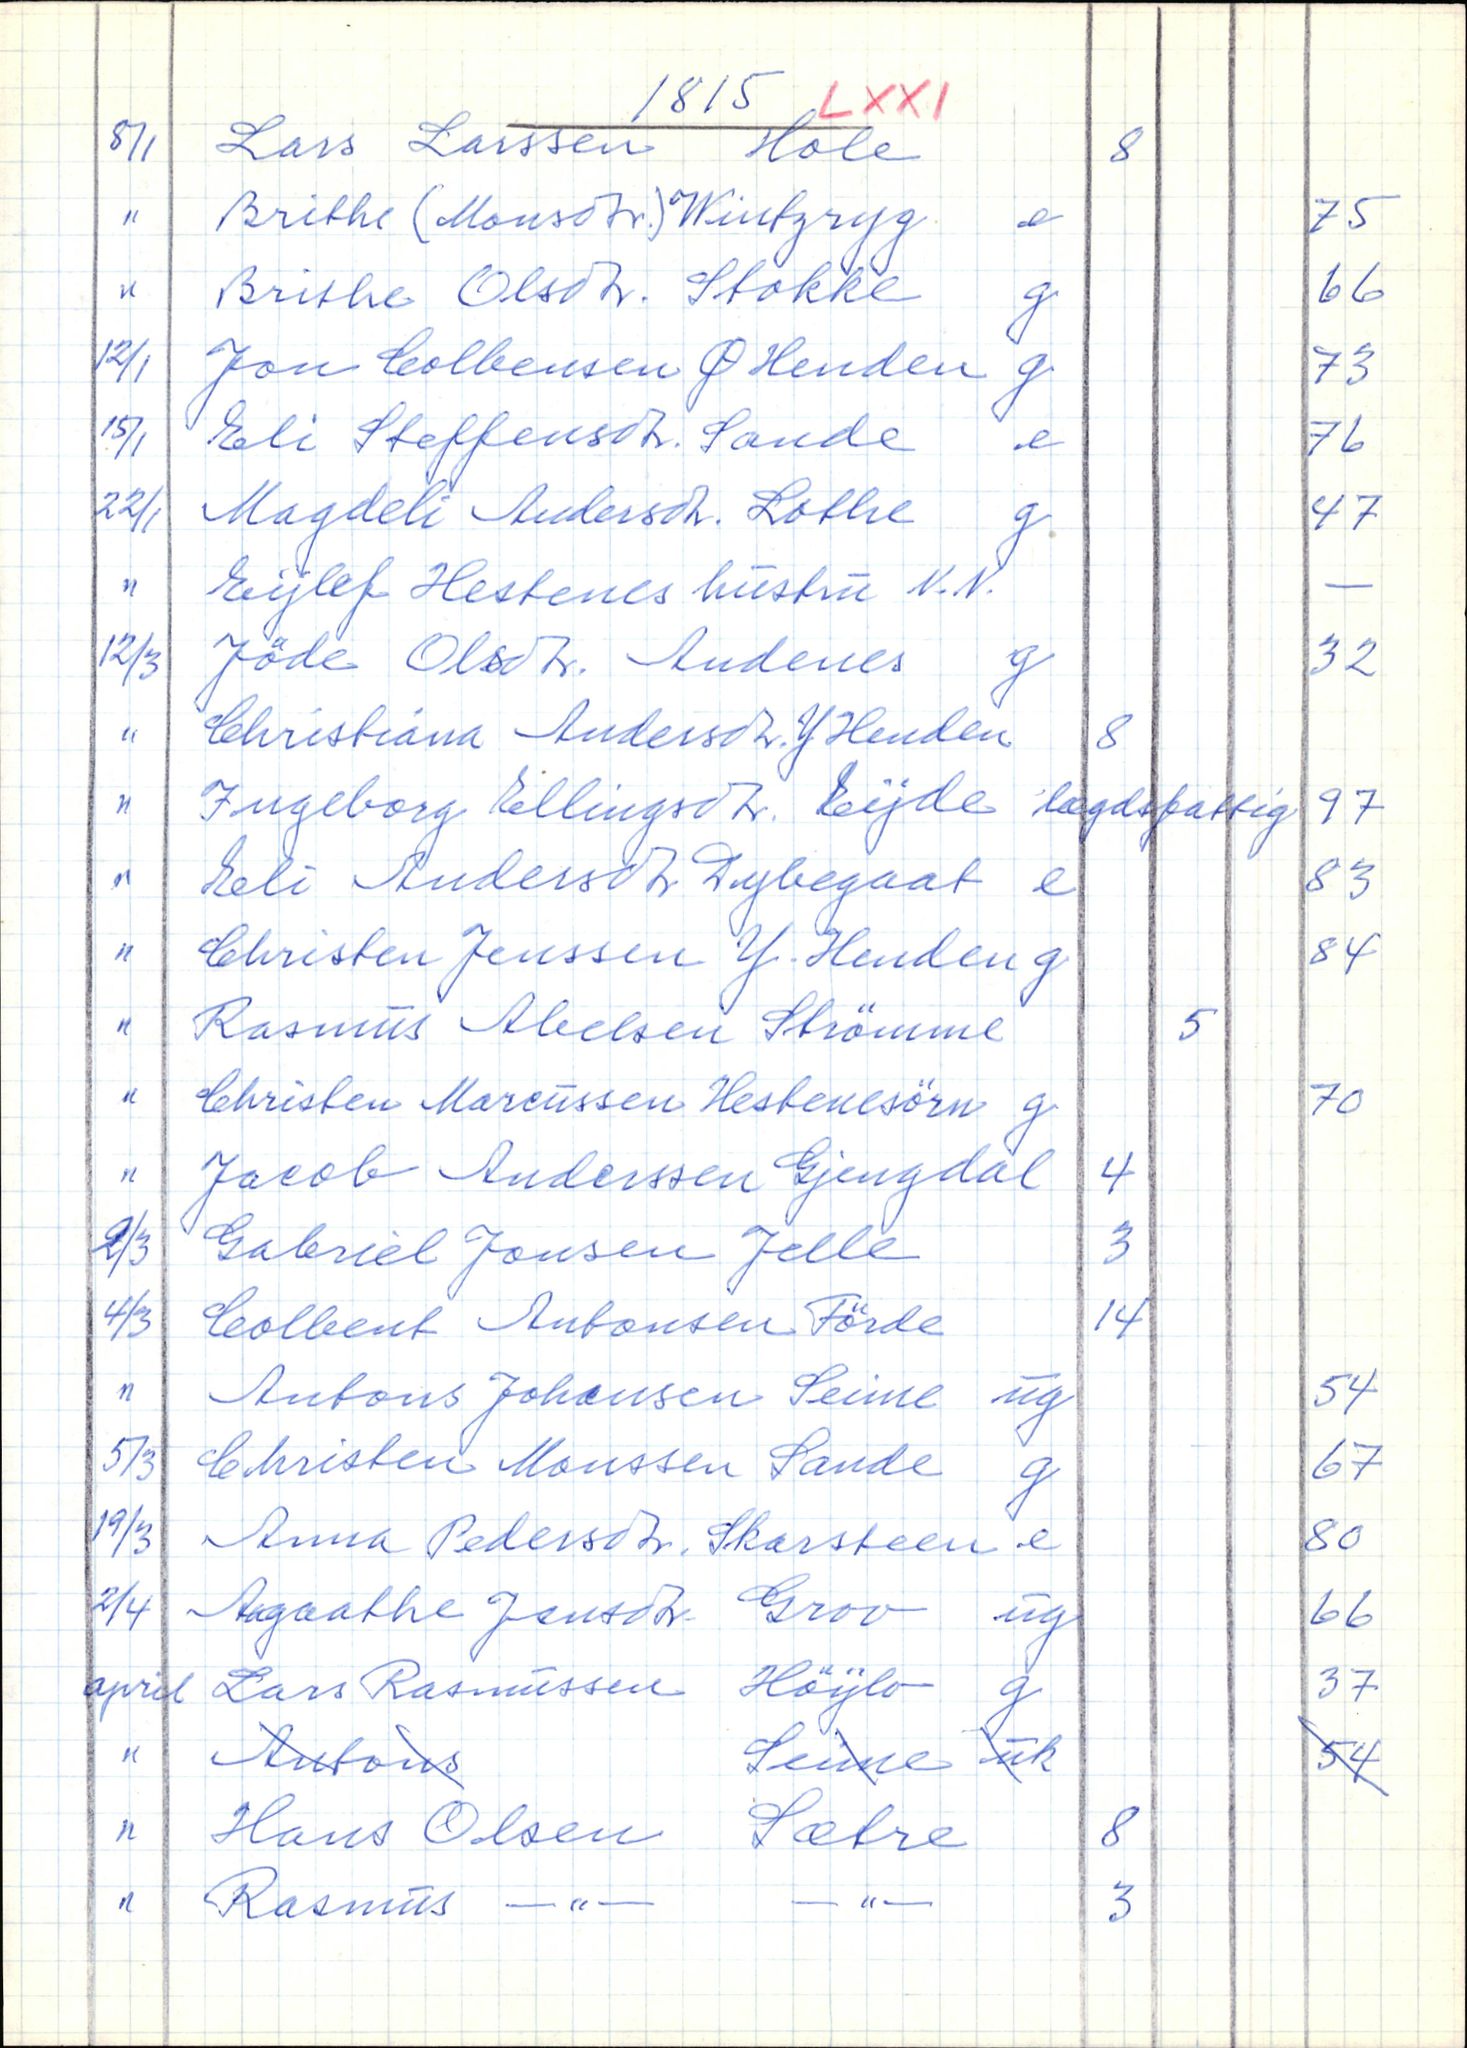 1815 LXXI
8/1 Lars Larssen Hole 8
" Brithe (Monsdtr.) Wintzryg e 75
" Brithe Olsdtr. Stokke g 66
12/1 Jon Colbensen Ø Henden g 73
15/1 Eli Steffensdtr. Sande e 76
22/1 Magdeli Andersdtr. Lothe g 47
" Eijlef Hestenes hustru N.N. —
12/3 Jöde Olsdtr. Andenes g 32
" Christiana Andersdtr. Y Henden 8
" Ingeborg Ellingsdtr. Eijde lægdsfattig 97
" Eli Andersdtr. Dybegaat e 83
" Christen Jenssen Y. Henden g 84
" Rasmus Abelsen Strömme 5
" Christen Marcussen Hestenesörn g 70
" Jacob Anderssen Gjengdal 4
2/3 Gabriel Jonsen Jelle 3
4/3 Colbent Antonsen Förde 14
" Antons Johansen Seime ug 54
5/3 Christen Monssen Sande g 67
19/3 Anna Pedersdtr. Skarsteen e 80
2/4 Aagaathe Jensdtr. Grov ug 66
april Lars Rasmussen Höijlo g 37
" Antons Seime uk 54
" Hans Olsen Sætre 8
" Rasmus —"— —"— 3